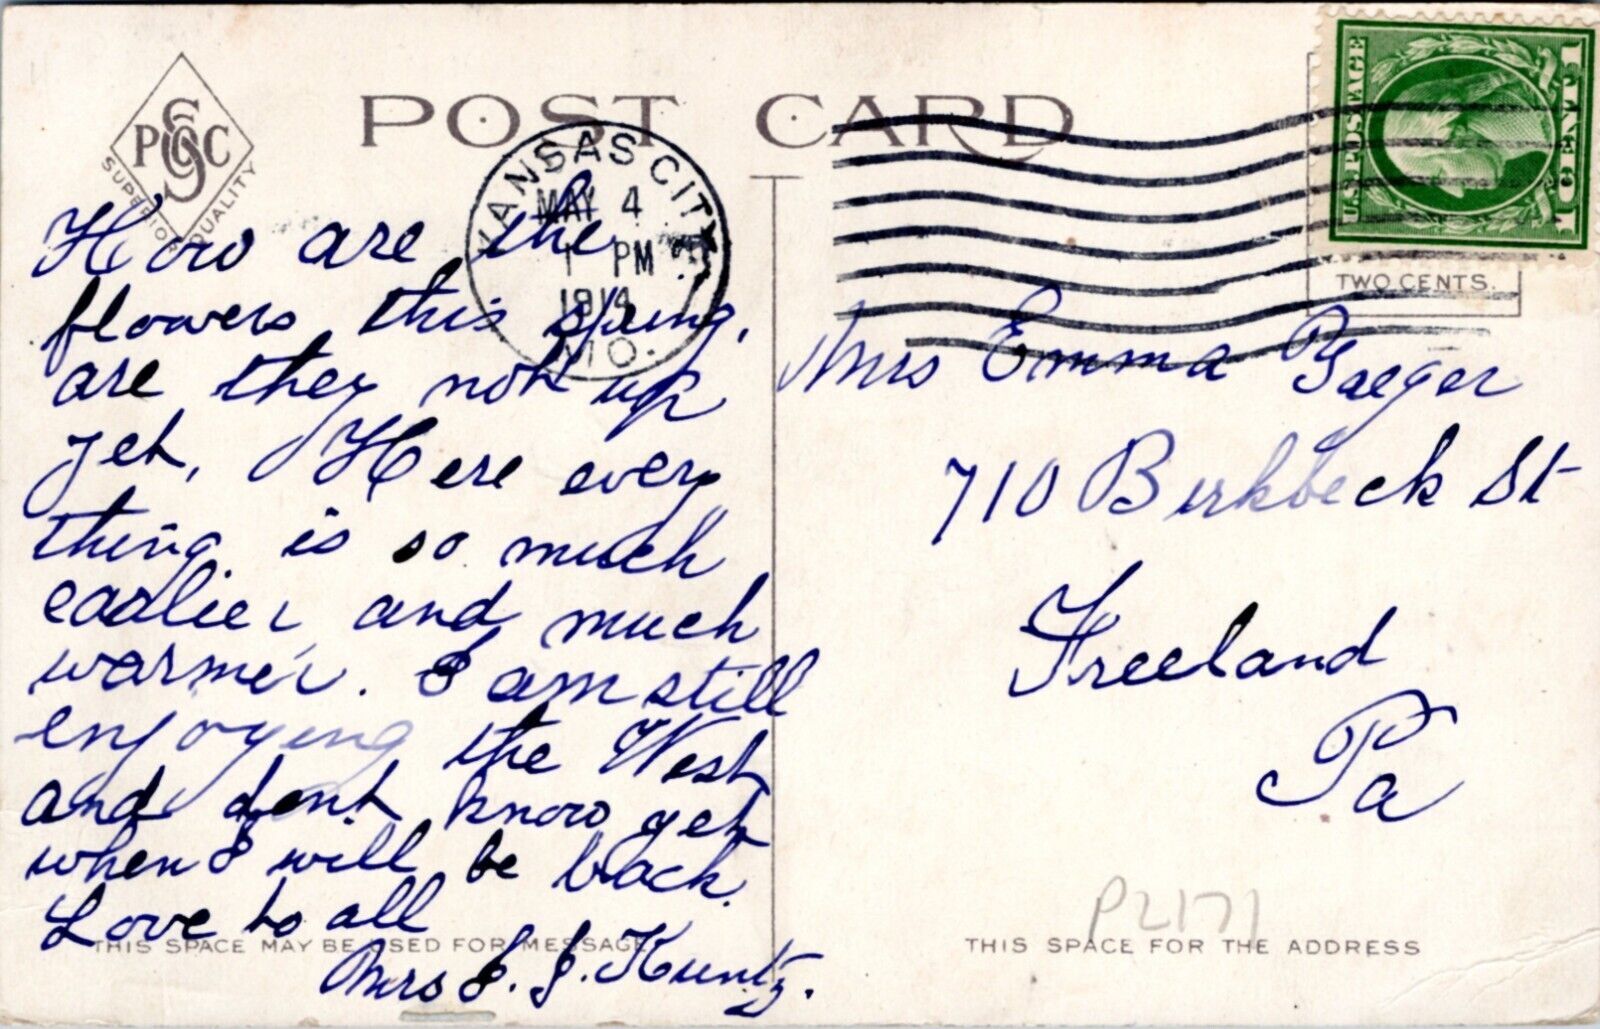 POST CARD
PSGC
SUPERIOR QUALITY
KANSAS CITY
MAY 4
1 PM
1914
MO.
U.S. POSTAGE
1 CENT 1
TWO CENTS.
How are the
flowers this spring,
are they not up
yet, Here every
thing is so much
earlier and much
warmer. I am still
enjoying the West
and dont know yet
when I will be back.
Love to all
Mrs J. J. Kuntz.
THIS SPACE MAY BE USED FOR MESSAGE
Mrs Emma Yaeger
710 Birkbeck St
Freeland
Pa
P2171
THIS SPACE FOR THE ADDRESS